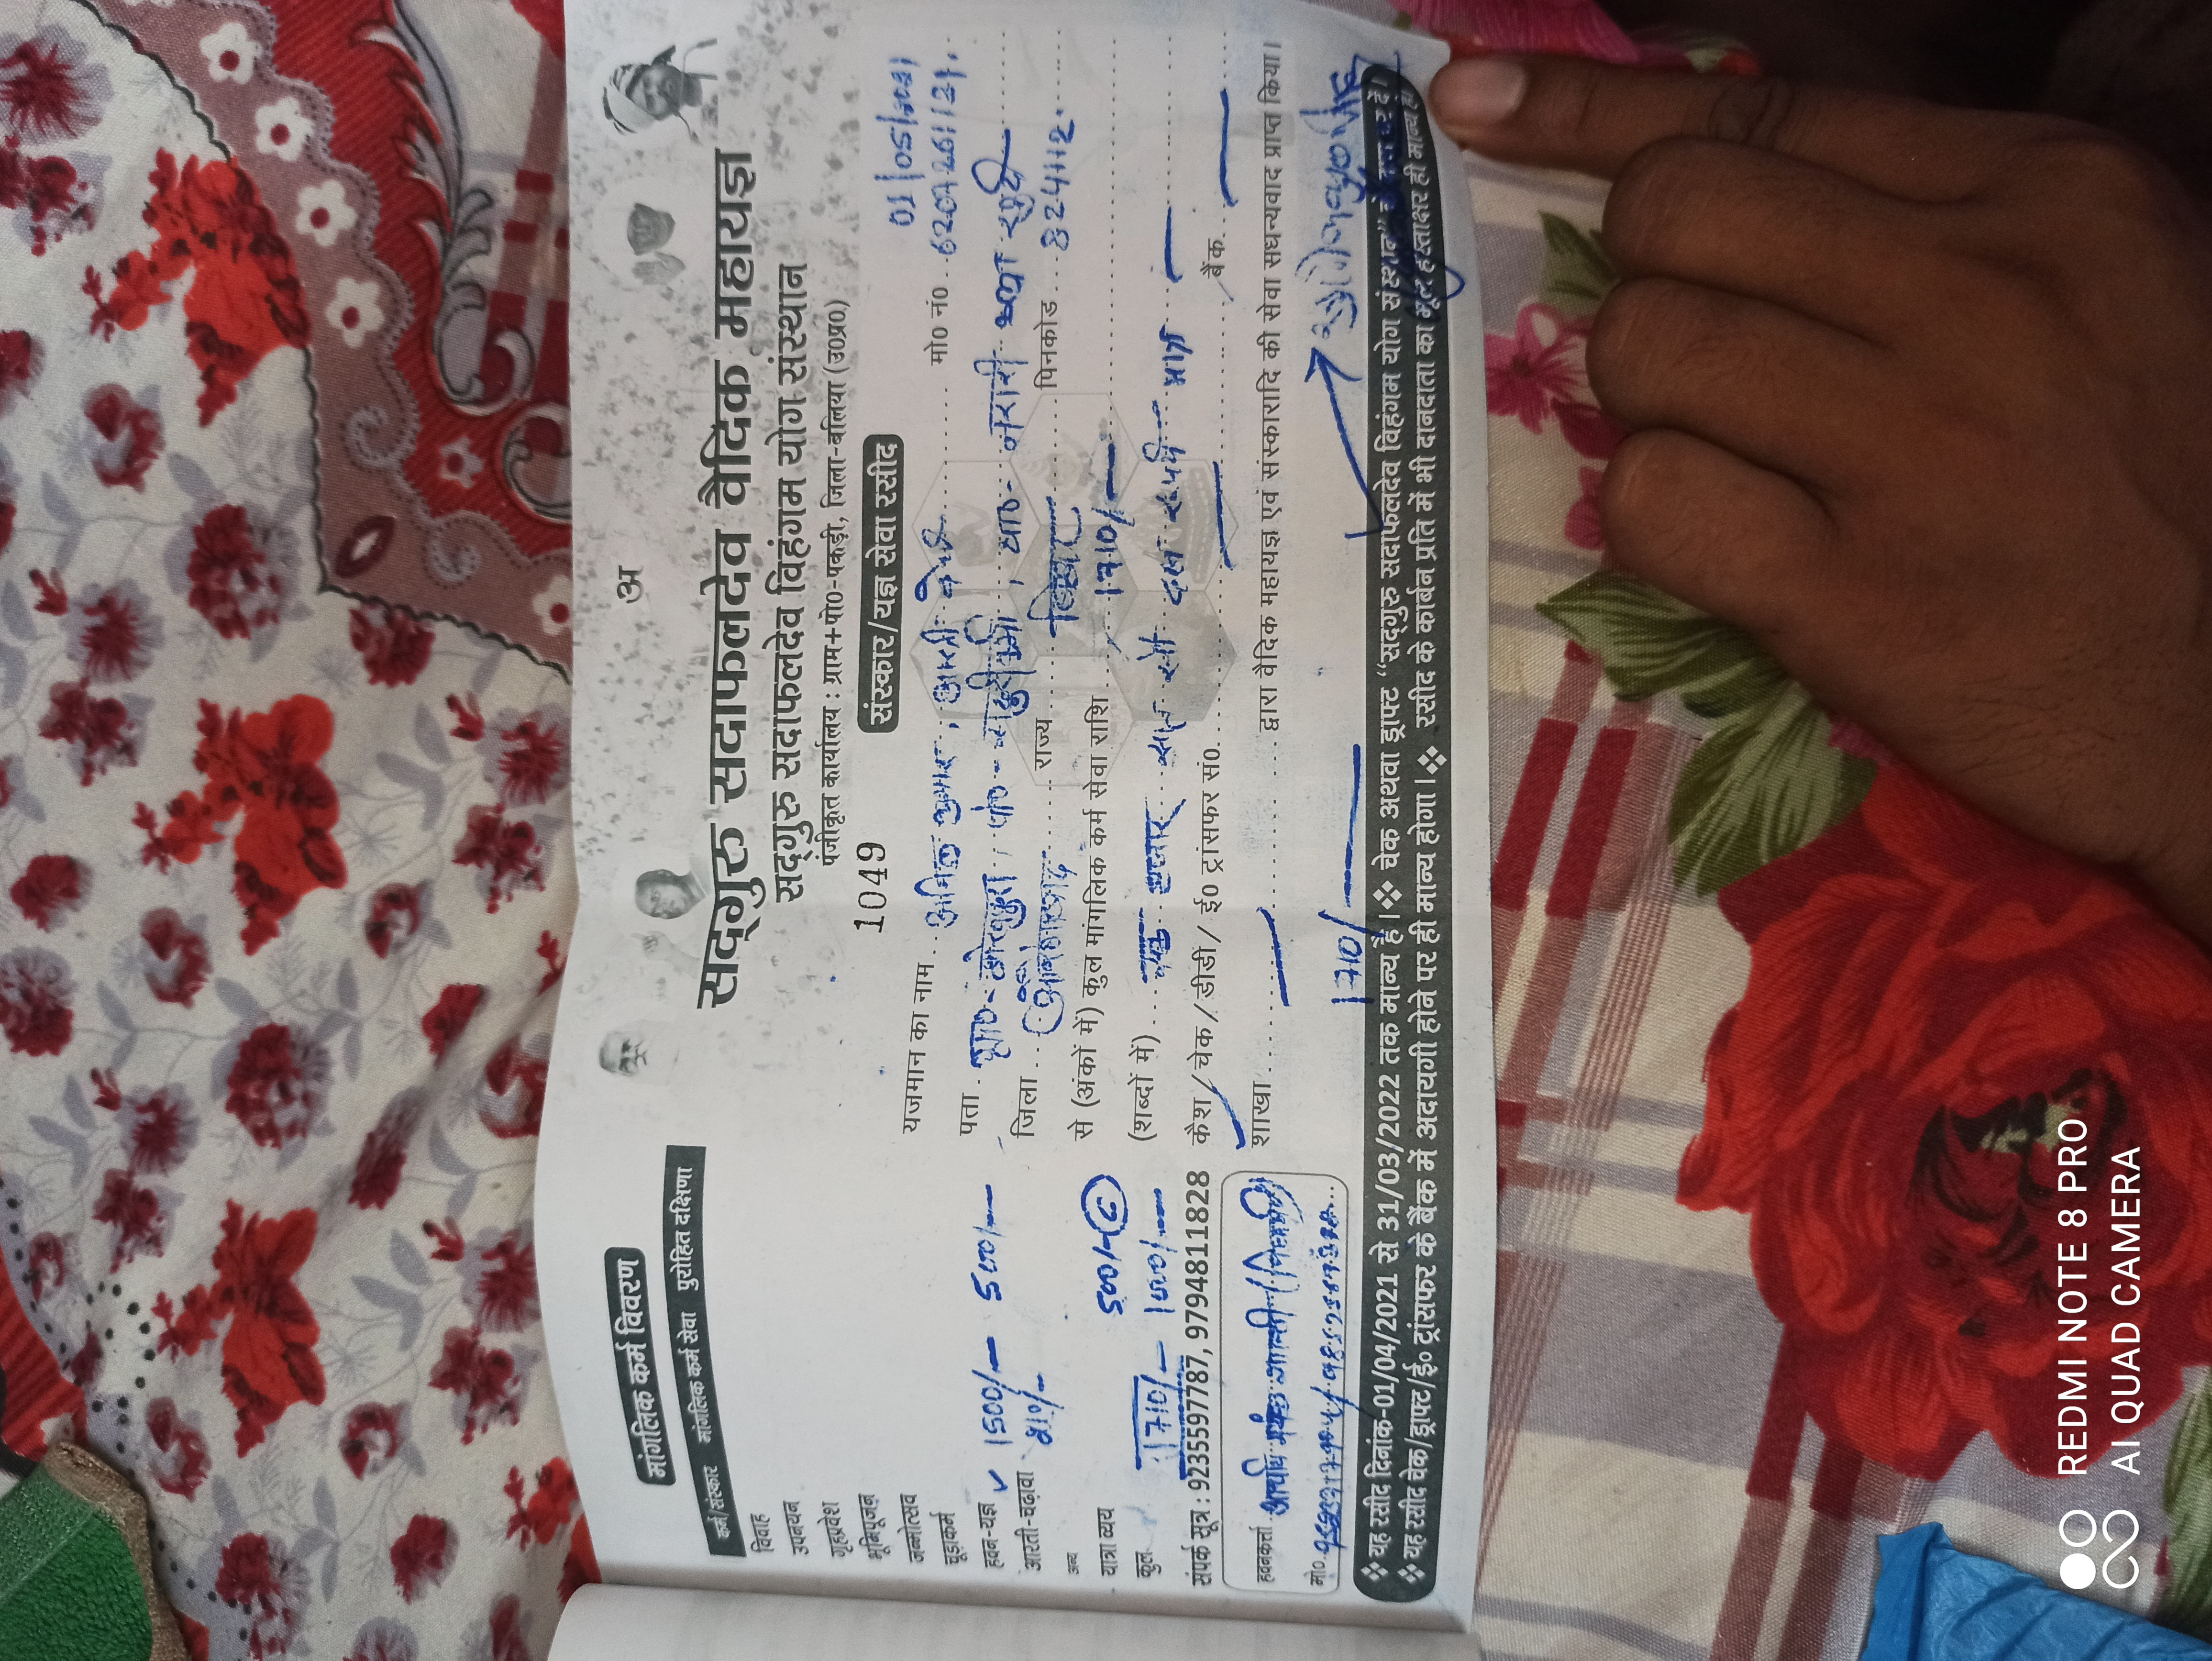 अ
सद्गुरु सदाफलदेव वैदिक महायज्ञ
सद्गुरु सदाफलदेव विहंगम योग संस्थान
पंजीकृत कार्यालय : ग्राम+पो०-पकड़ी, जिला-बलिया (उ०प्र०)
1049
संस्कार/यज्ञ सेवा रसीद
यजमान का नाम अनिल कुमार, मो० नं०
पता
जिला राज्य बिहार पिनकोड 824112.
से (अंकों में) कुल मांगलिक कर्म सेवा राशि 1710/-
(शब्दों में) एक हजार सात सौ दस रुपये मात्र
कैश / चेक / डीडी / ई० ट्रांसफर सं० बैंक
शाखा द्वारा वैदिक महायज्ञ एवं संस्कारादि की सेवा सधन्यवाद प्राप्त किया।
1710/-
मांगलिक कर्म विवरण
कर्म/संस्कार मांगलिक कर्म सेवा पुरोहित दक्षिणा
विवाह
उपनयन
गृहप्रवेश
भूमिपूजन
जन्मोत्सव
चूड़ाकर्म
हवन-यज्ञ ✓ 1500/- 500/-
आरती-चढ़ावा 210/-
अन्य
यात्रा व्यय 500/-
कुल 1710/- 1000/-
संपर्क सूत्र : 9235597787, 9794811828
हवनकर्त्ता
मो०
❖ यह रसीद दिनांक-01/04/2021 से 31/03/2022 तक मान्य है। ❖ चेक अथवा ड्राफ्ट "सद्गुरु सदाफलदेव विहंगम योग संस्थान" दें।
❖ यह रसीद चेक/ड्राफ्ट/ई० ट्रांसफर के बैंक में अदायगी होने पर ही मान्य होगा। ❖ रसीद के कार्बन प्रति में भी दानदाता का मूल हस्ताक्षर ही मान्य हो
REDMI NOTE 8 PRO
AI QUAD CAMERA